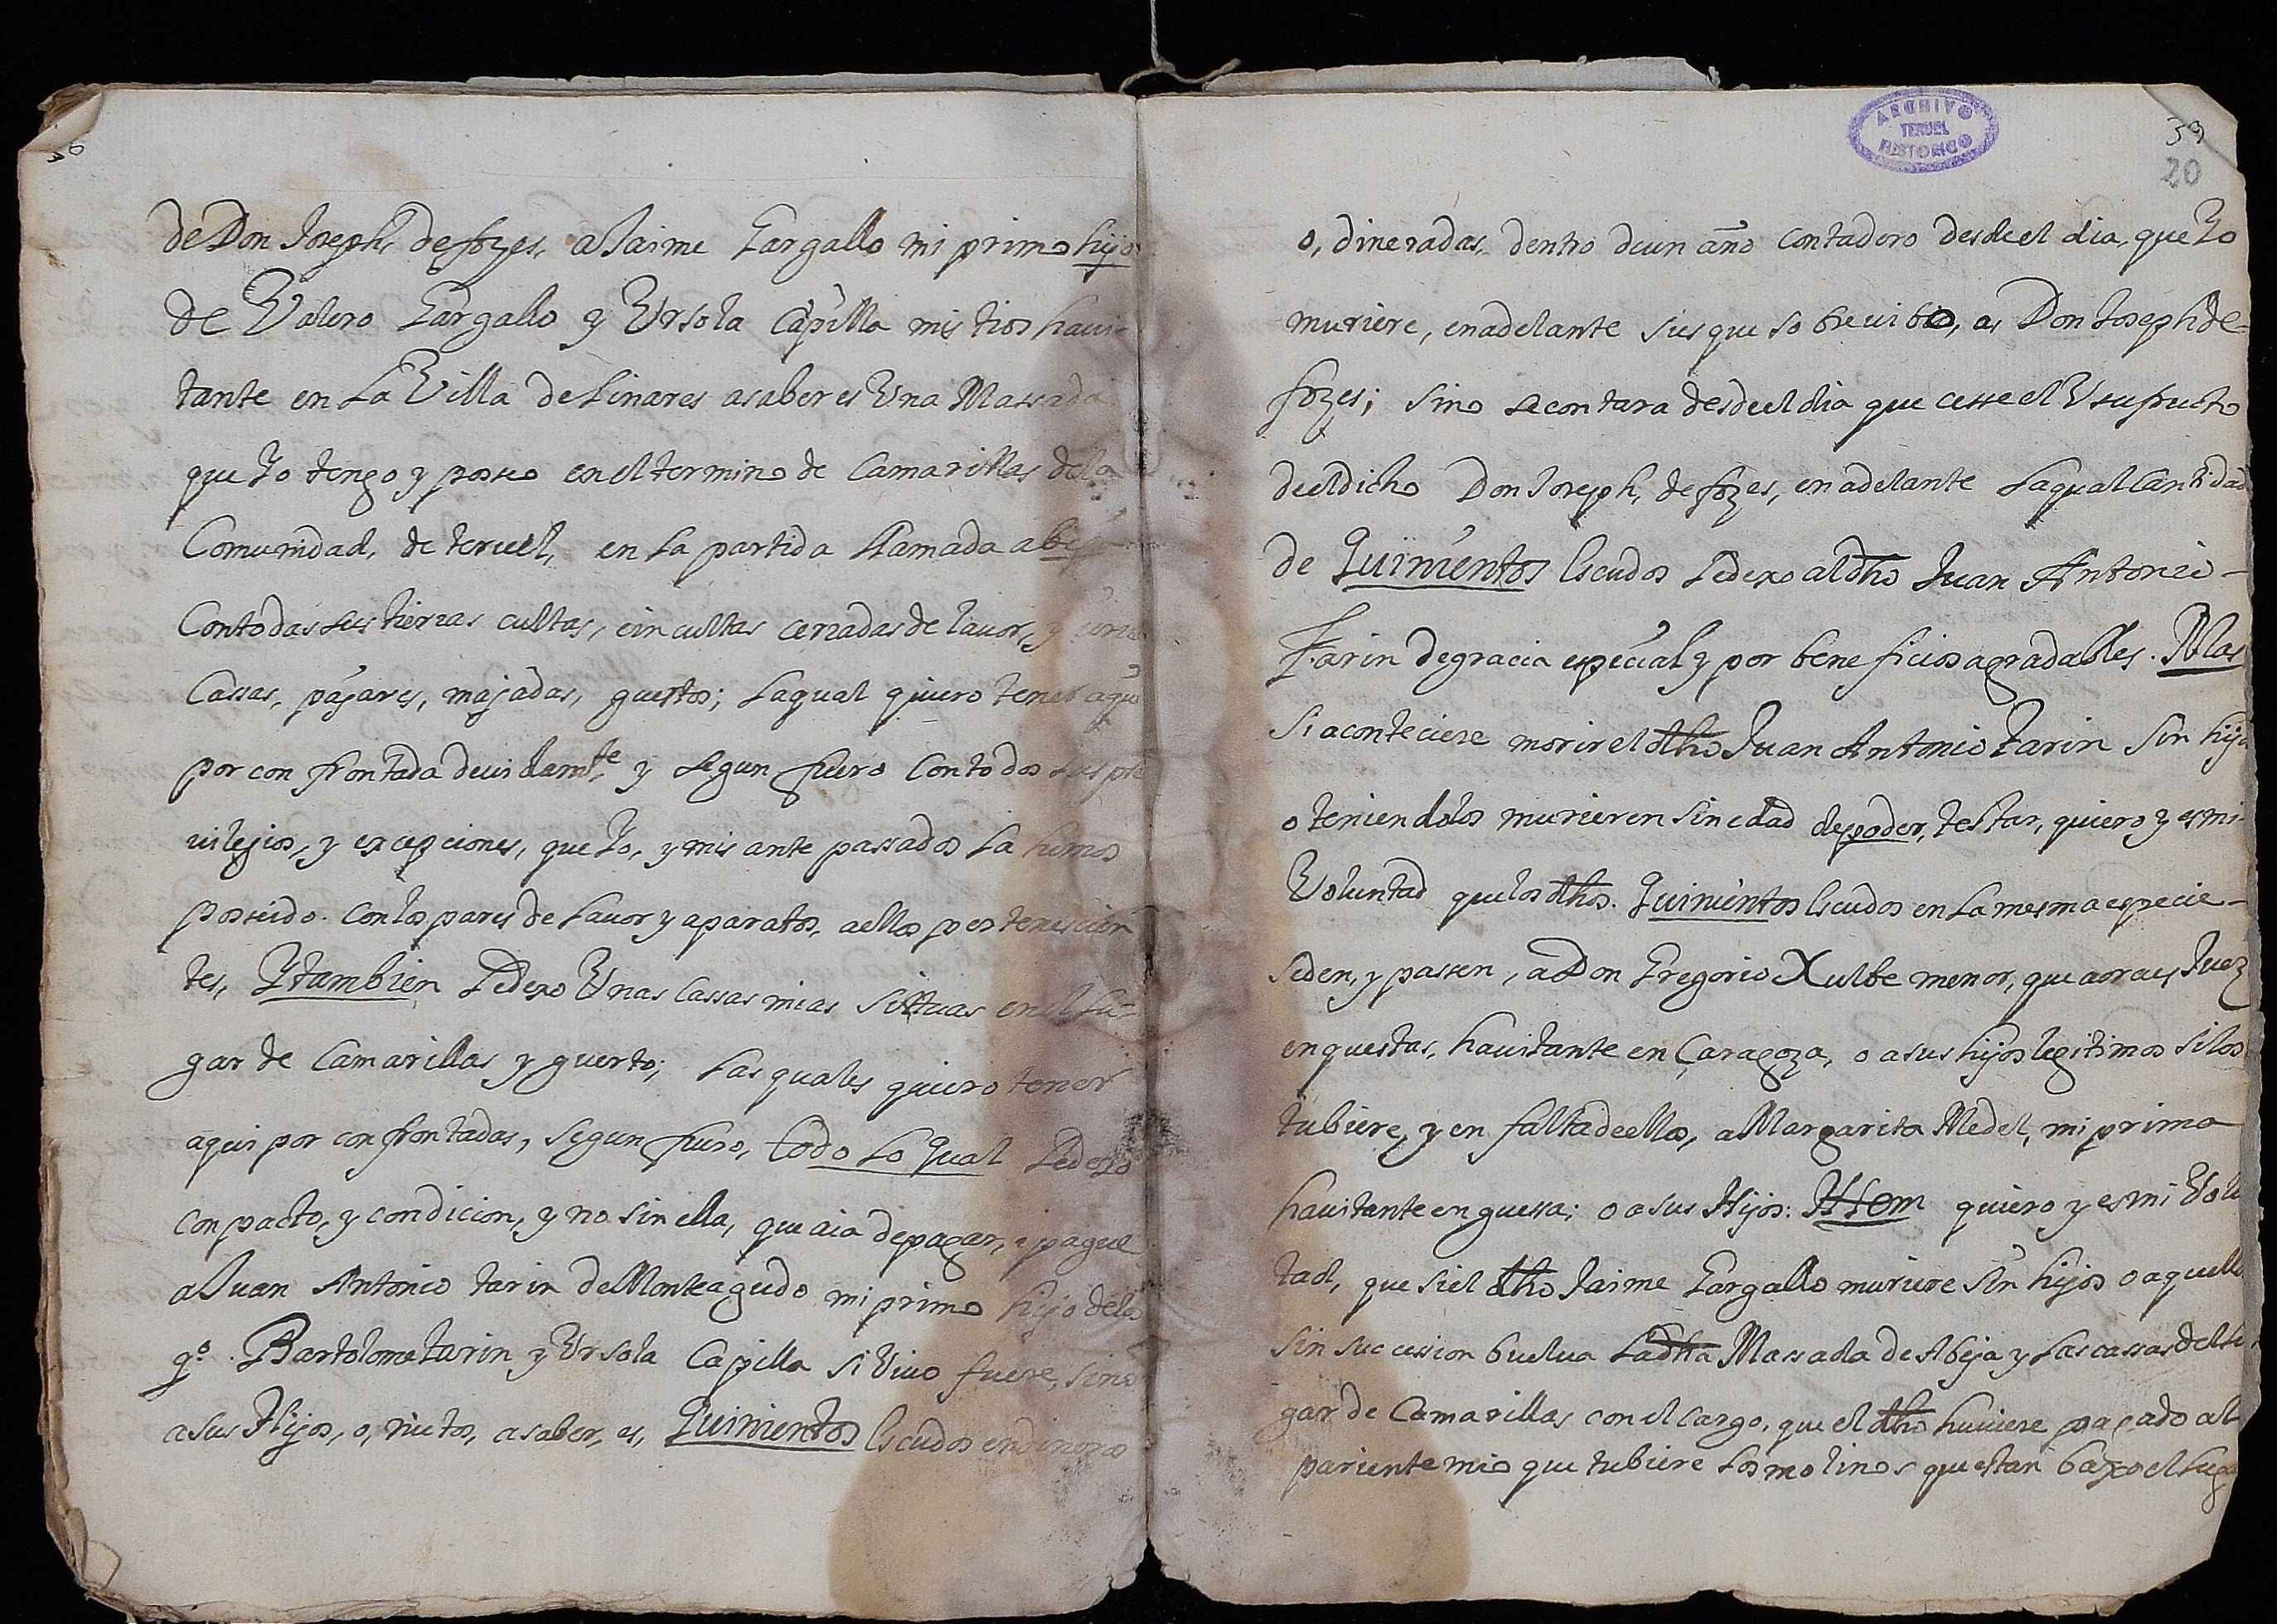 38
de Don Joseph, de fozes, a Jaime Gargallo mi primo hijo
de Valero Gargallo y Ursola Capilla mis tios havi-
tante en La Villa de Linares a saber es Una Massada
que Yo tengo y posseo en el termino de Camarillas dela
Comunidad, de teruel, en La partida Llamada abeja
Con todas sus tierras cultas, e incultas cerradas de lavor, y
Cassas, pajares, majadas, guertos; La qual quiero tener aqui
por con frontada devidamte. y segun fuero Con todos sus pri
vilejios, y excepciones, que Yo, y mis ante passados La hemos
posseido. Con los pares de Lavor y aparatos, a ellos pertenescien
tes, Ytambien Le dexo Unas Cassas mias sittuas en el Lu-
gar de Camarillas y guerto; Las quales quiero tener
aqui por confrontadas, segun fuero, todo Lo qual Le dexo
con pacto, y condicion, y no sin ella, que aia de pagar, i pague
a Juan Antonio tarin de Monteagudo mi primo hijo dela
qo. Bartolome tarin y Ursola Capilla si Vivo fuere, sino
a sus Hijos, o, nietos, a saber, es, Quinientos Escudos en dineros
ARCHIVO
TERUEL
HISTORICO
39
20
o, dineradas, dentro de un año contadero desde el dia, que Yo
muriere, en adelante si es que sobrevibo, a Don Joseph de-
fozes; sino se contara desde el dia que cesse el Usufructo
de el dicho Don Joseph, de fozes, en adelante La qual Cantidad
de Quinientos Escudos Le dexo al dho Juan Antonio-
Tarin de gracia especial y por beneficios agradables. Mas
si aconteciere morir el dho Juan Antonio Tarin sin hijos
o teniendolos murieren sin edad de poder, testar, quiero y es mi
Voluntad que los dhos. Quinientos Escudos en La mesma especie-
se den, y passen, a Don Gregorio Xulbe menor, que aora es Juez
enquestas, havitante en Çaragoza, o a sus hijos legitimos si los
tubiere, y en falta de ellos, a Margarita Medel, mi prima
havitante en guessa; o a sus Hijos: Ittem quiero y es mi Volu
tad, que si el dho Jaime Gargallo muriere sin hijos o aquellos
sin succession buelva La dha Massada de Abeja y Las cassas del Lu
gar de Camarillas con el cargo, que el dho huviere pagado al
pariente mio que tubiere Los molinos que estan baxo el Luga